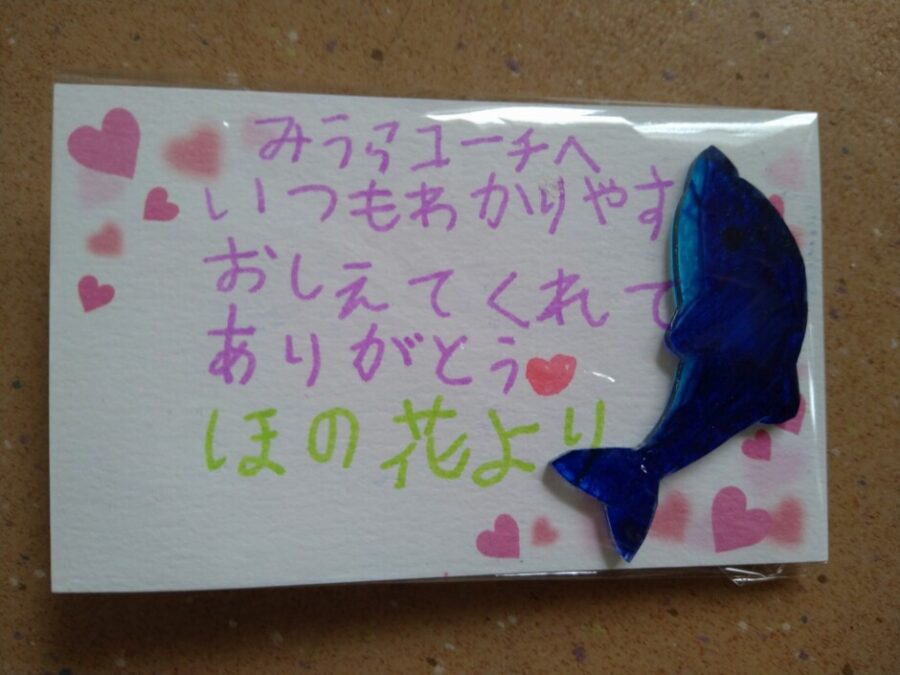 みうらコーチへ
いつもわかりやす
おしえてくれて
ありがとう
ほの花より